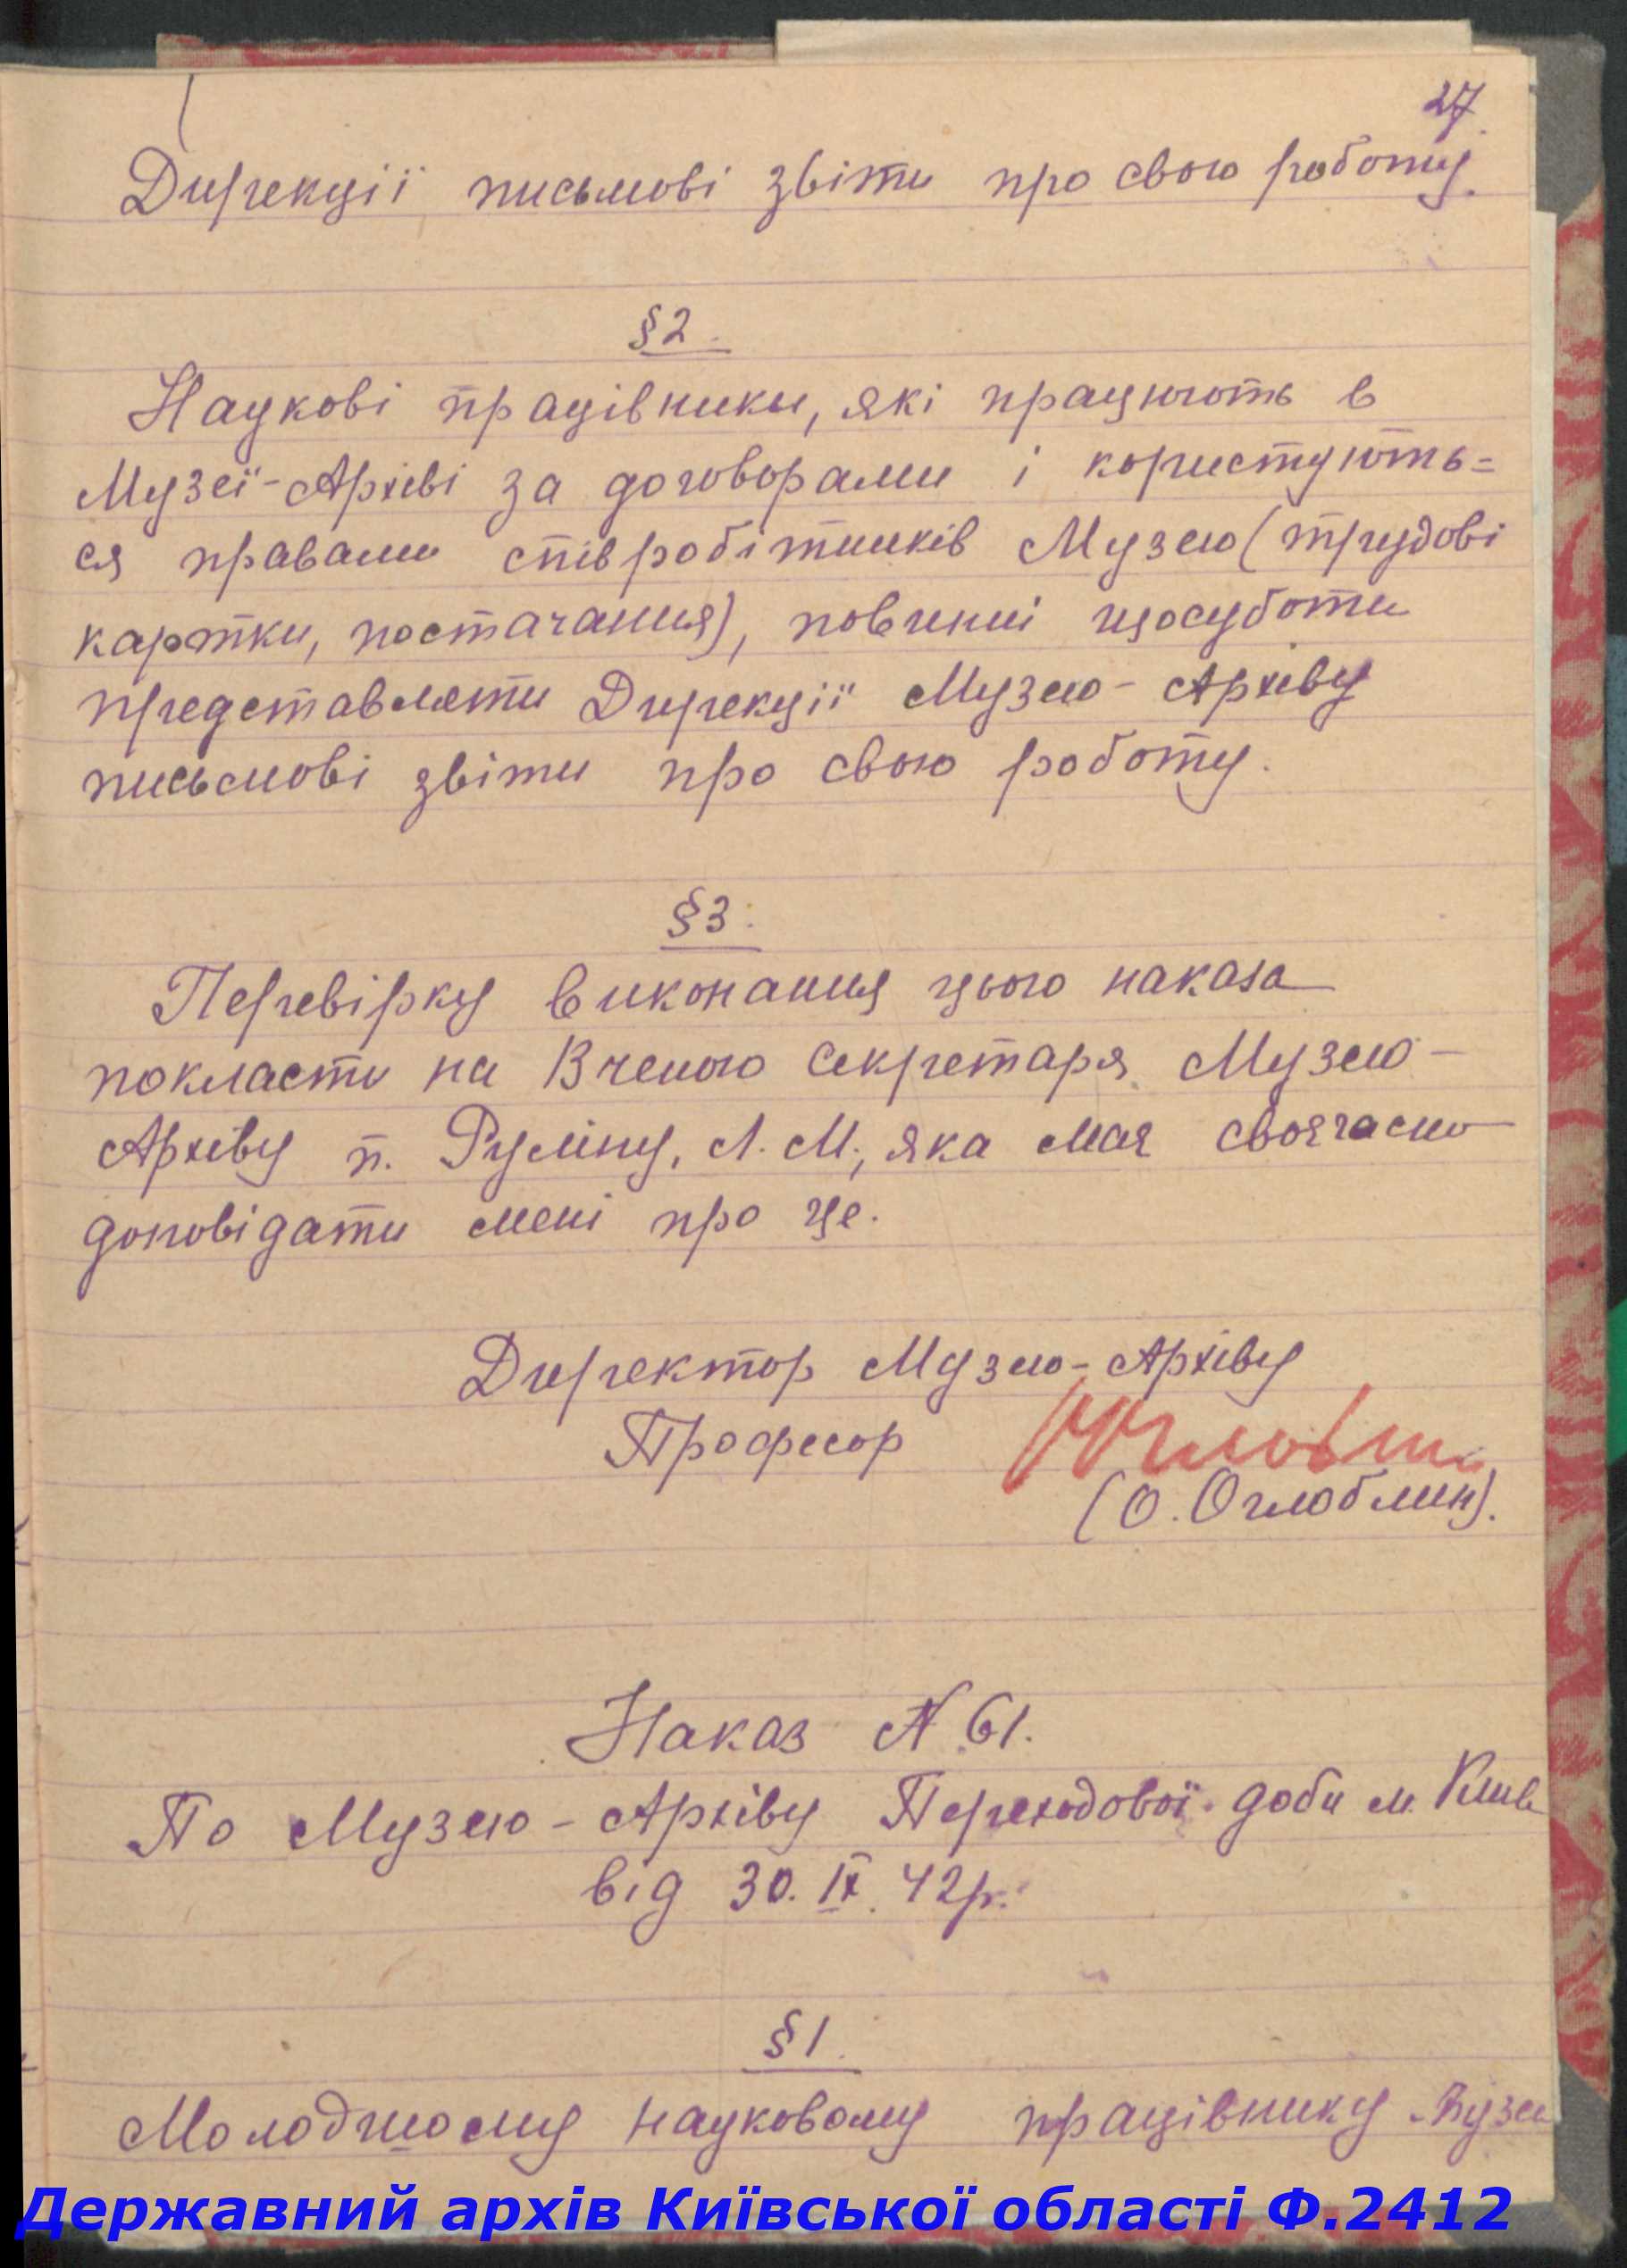 27.
Дирекції письмові звіти про свою роботу.
§2.
Наукові працівники, які працюють в
Музеї-Архіві за договорами і користують=
ся правами співробітників Музею (трудові
картки, постачання), повинні щосуботи
представляти Дирекції Музею-Архіву
письмові звіти про свою роботу.
§3.
Перевірку виконання цього наказа
покласти на Вченого Секретаря Музею-
Архіву п. Руліну, Л. М., яка має своєчасно
доповідати мені про це.
Директор Музею-Архіву
Професор
(О. Оглоблин).
Наказ № 61.
По Музею-Архіву Переходової доби м. Київ
від 30.IX.42р.
§1.
Молодшому науковому працівнику Музе
Державний архів Київської області Ф.2412